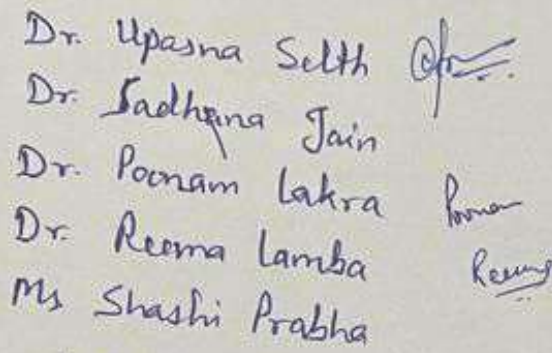 Dr. Upasna Seth
Dr. Sadhana Jain
Dr. Poonam Lakra Poonam
Dr. Reema Lamba Reema
Ms Shashi Prabha